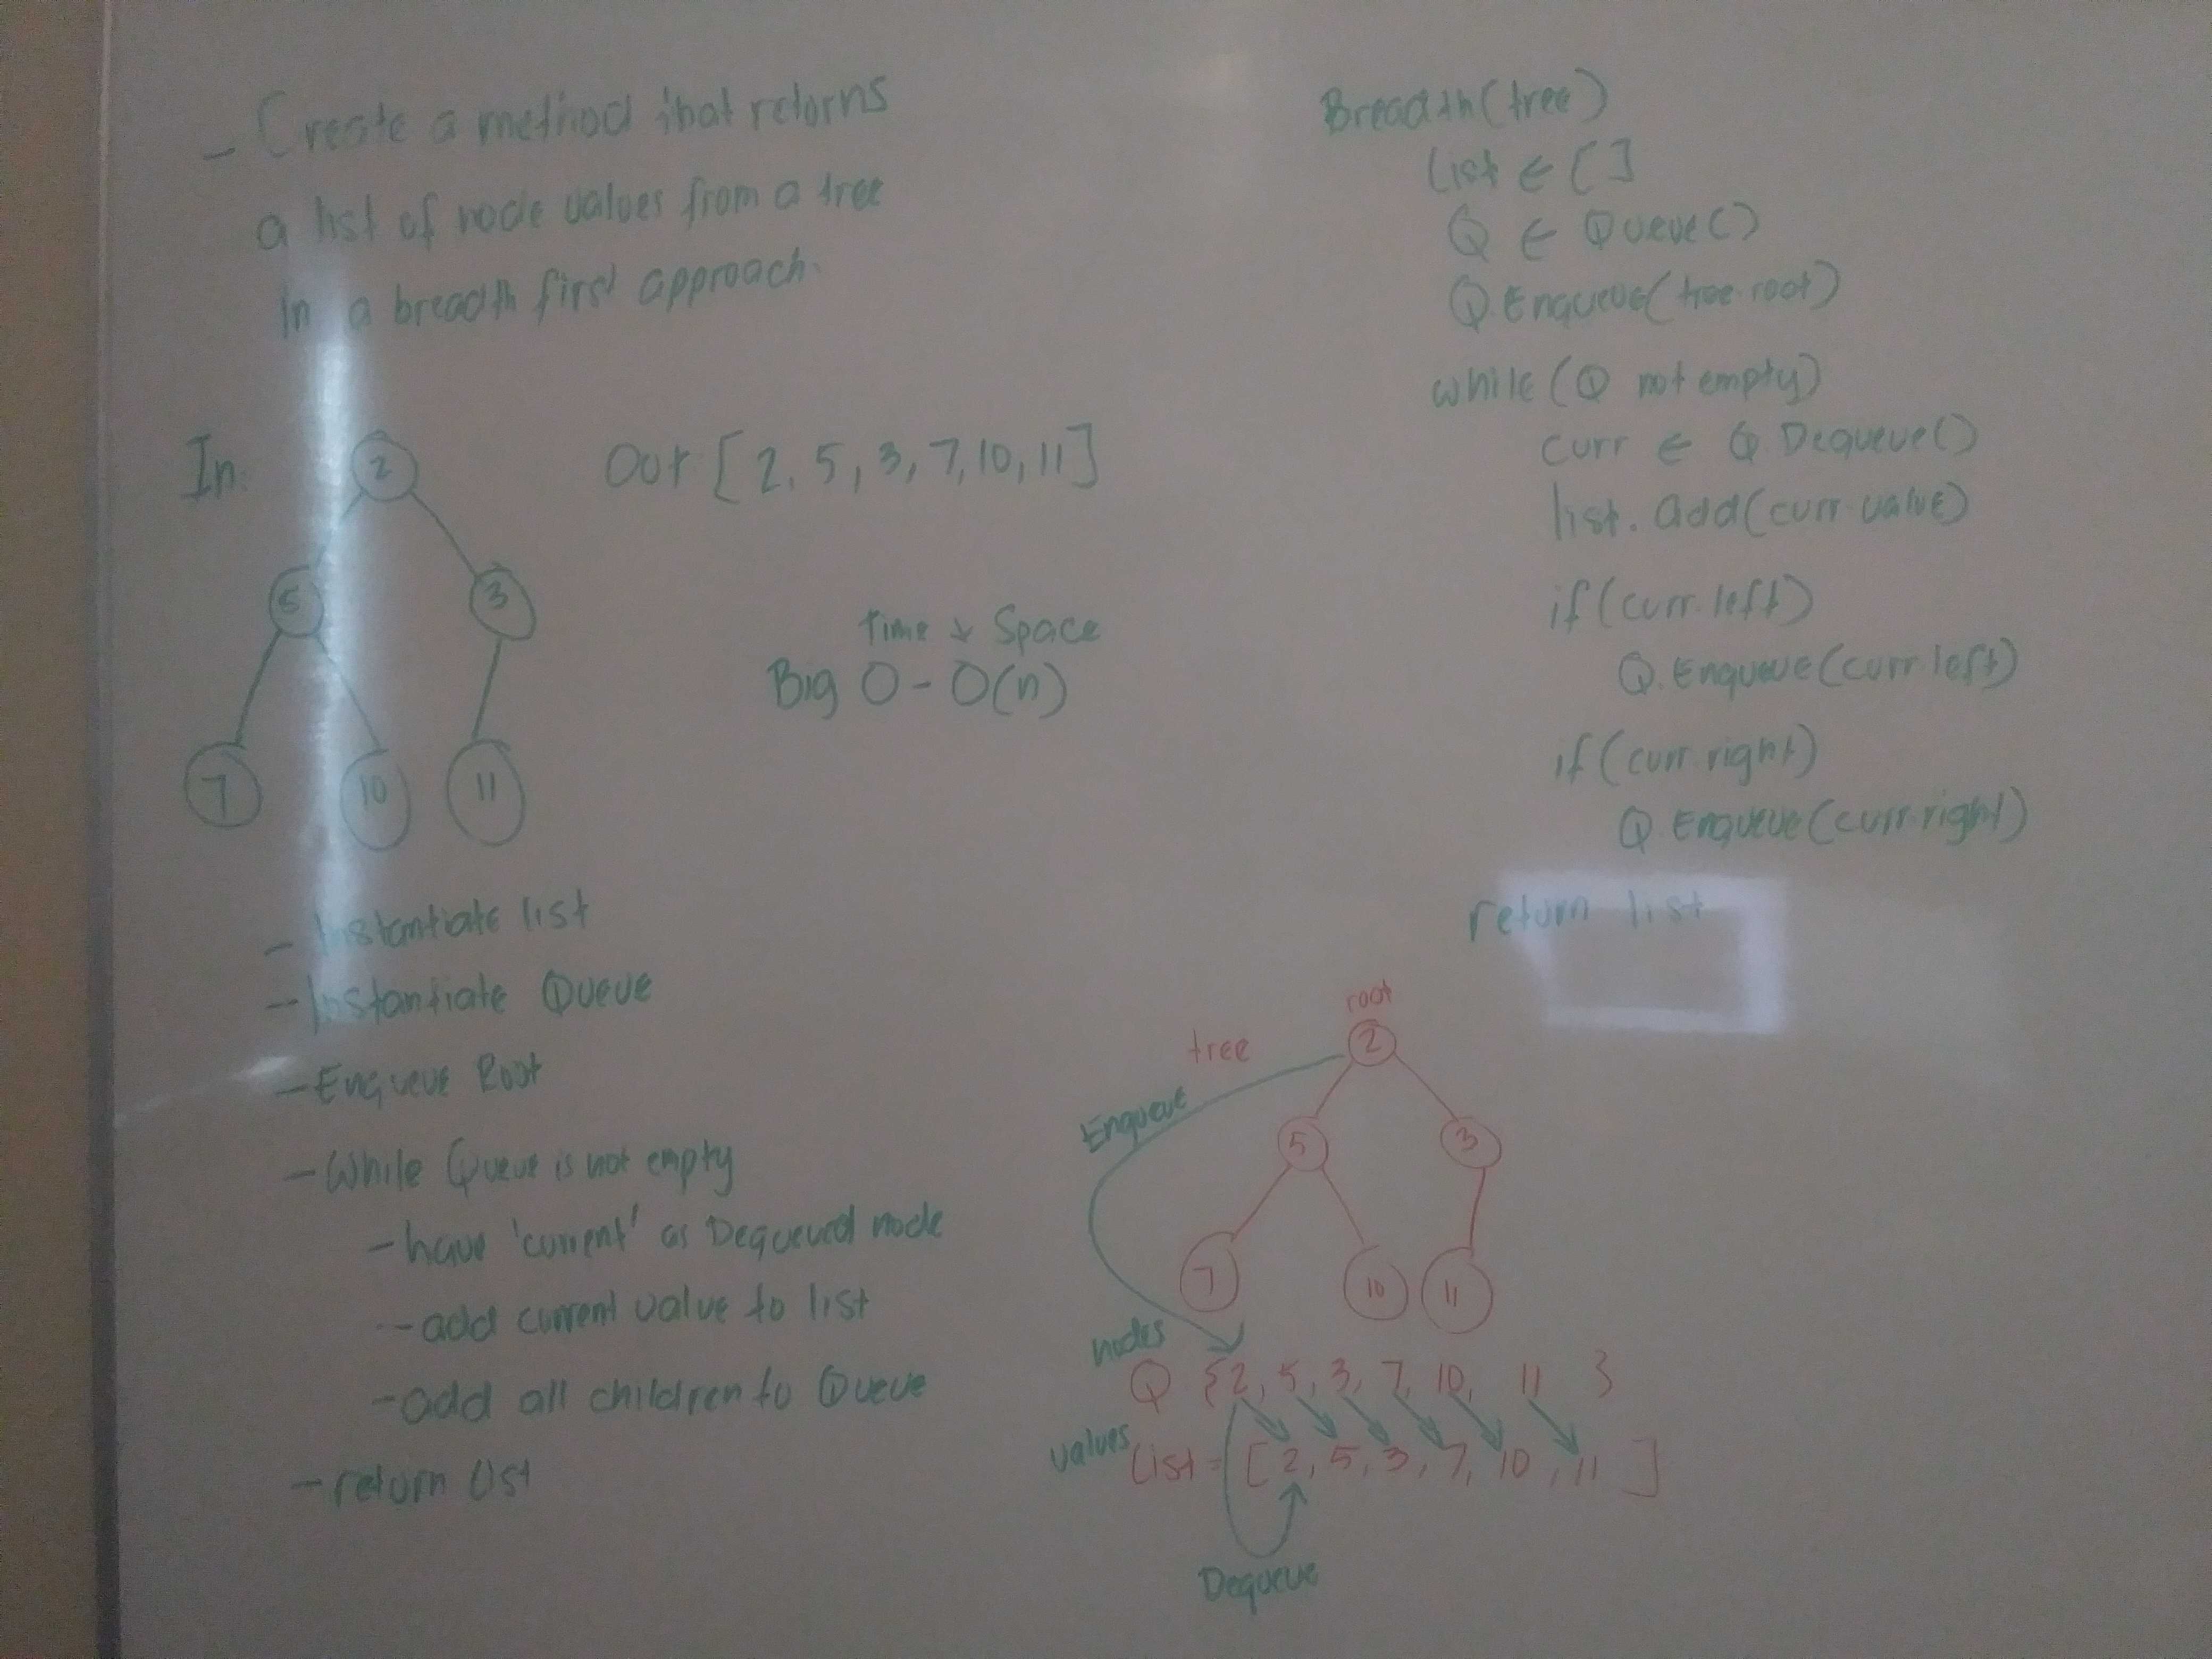 - Create a method that returns
a list of node values from a tree
in a breadth first approach.
In:
2
5
3
7
10
11
Out [2, 5, 3, 7, 10, 11]
Time & Space
Big O - O(n)
- Instantiate list
- Instantiate Queue
- Enqueue Root
- While Queue is not empty
- have 'current' as Dequeued node
- add current value to list
- add all children to Queue
- return list
Breadth(tree)
List ← []
Q ← Queue()
Q.Enqueue(tree.root)
while(Q not empty)
curr ← Q Dequeue()
list.add(curr.value)
if(curr.left)
Q.Enqueue(curr.left)
if(curr.right)
Q.Enqueue(curr.right)
return list
root
tree
2
Enqueue
5
3
7
10
11
nodes
Q {2, 5, 3, 7, 10, 11 }
values
List = [2, 5, 3, 7, 10, 11 ]
Dequeue